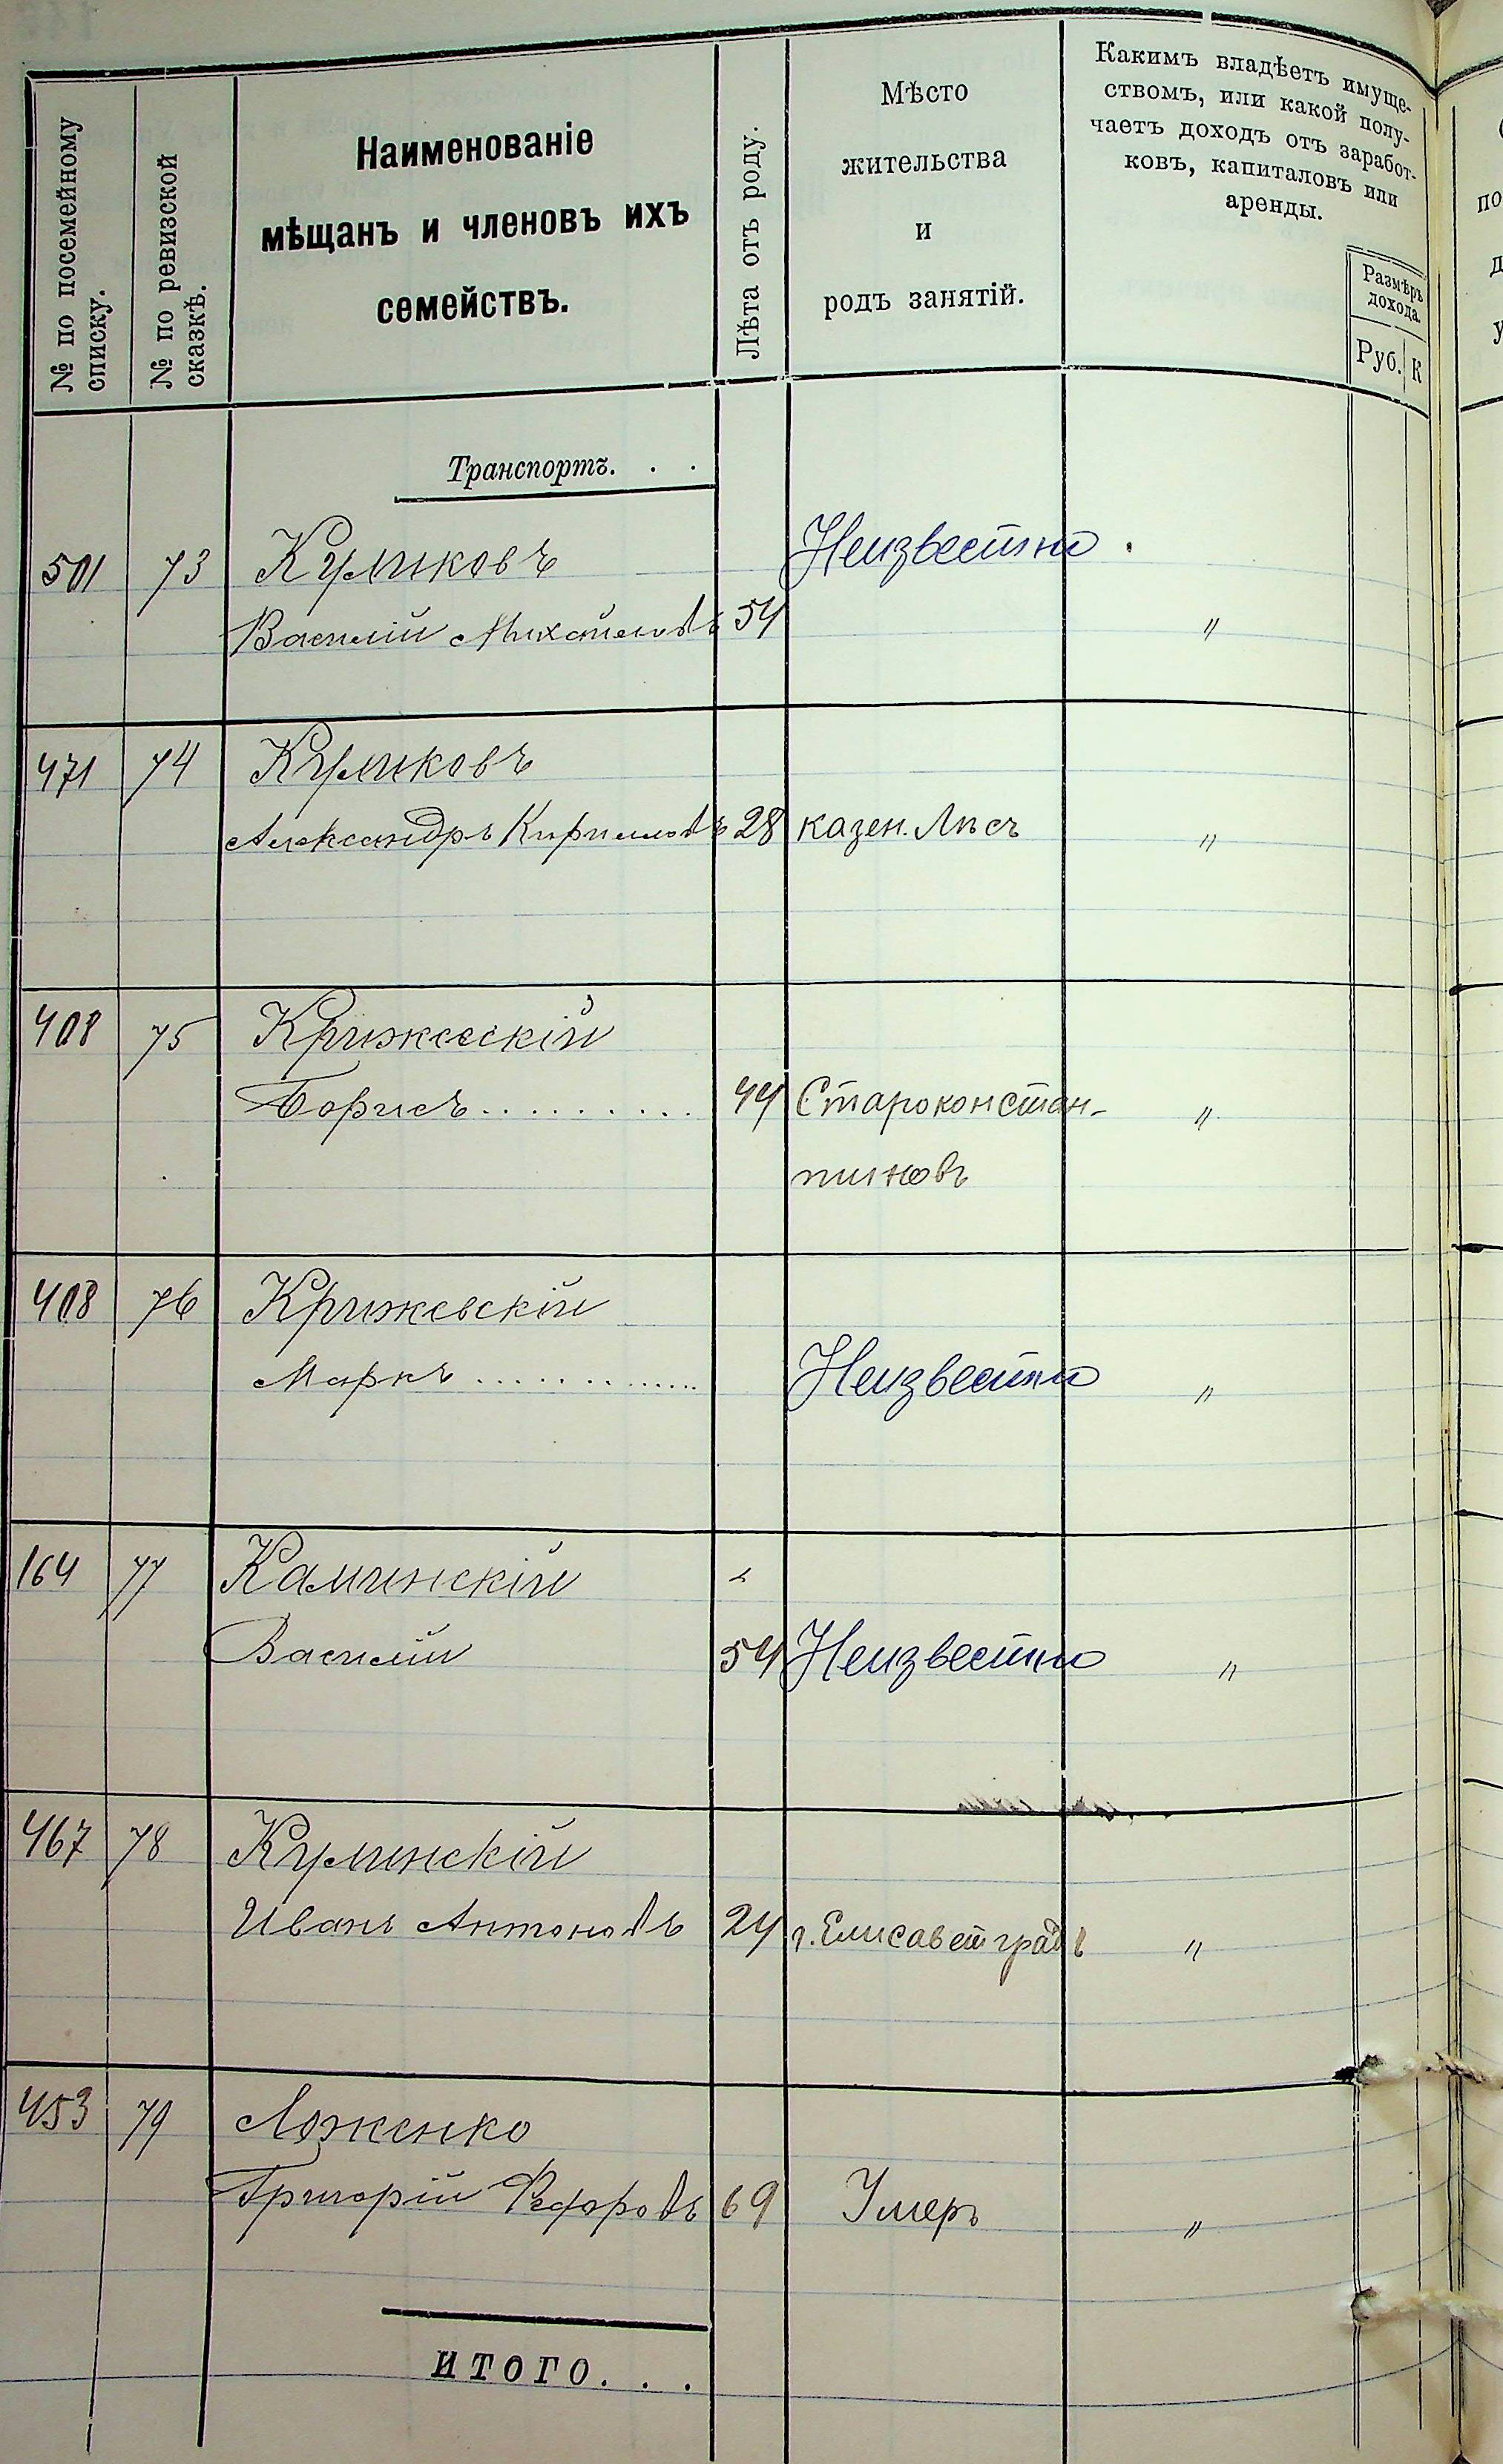 № по посемейному
списку.
№ по ревизской
сказкѣ.
Наименованіе
мѣщанъ и членовъ ихъ
семействъ.
Лѣта отъ роду.
Мѣсто
жительства
и
родъ занятій.
Какимъ владѣетъ имуще-
ствомъ, или какой полу-
чаетъ доходъ отъ заработ-
ковъ, капиталовъ или
аренды.
Размѣръ
дохода.
Руб. К
Транспортъ. . .
501 73 Куликовъ Неизвестно .
Василій Михайловъ 54 "
471 74 Куликовъ
Александръ Кириловъ 28 казен. Лѣсъ "
408 75 Крижевскій
Борисъ.......... 44 Староконстан- "
тиновъ
408 76 Крижевскій
Маркъ ............. Неизвестно "
164 77 Каминскій
Василій 54 Неизвестно "
467 78 Кулинскій
Иванъ Антоновъ 24 г. Елисаветградъ "
453 79 Ложенко
Григорій Федоровъ 69 Умеръ "
ИТОГО. . .